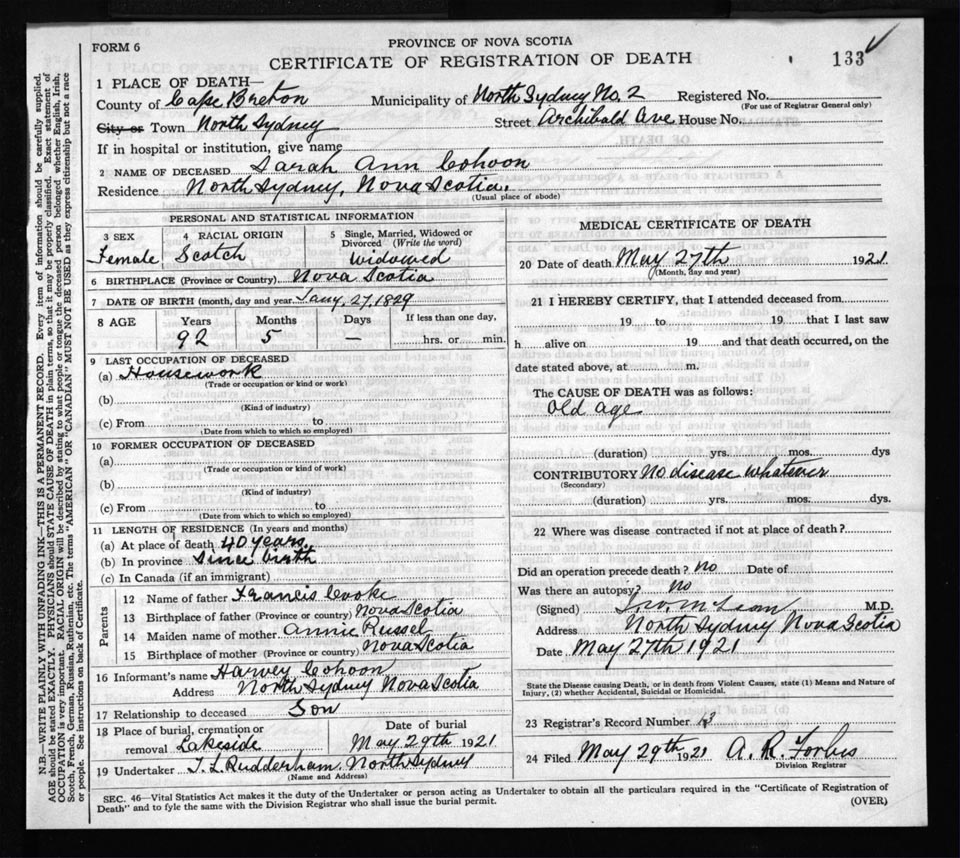 FORM 6
PROVINCE OF NOVA SCOTIA
CERTIFICATE OF REGISTRATION OF DEATH
133 ✓
1 PLACE OF DEATH—
County of Cape Breton Municipality of North Sydney No. 2 Registered No.
(For use of Registrar General only)
City or Town North Sydney Street Archibald Ave House No.
If in hospital or institution, give name
2 NAME OF DECEASED Sarah Ann Cohoon
Residence North Sydney, Nova Scotia.
(Usual place of abode)
PERSONAL AND STATISTICAL INFORMATION
3 SEX Female
4 RACIAL ORIGIN Scotch
5 Single, Married, Widowed or Divorced (Write the word) Widowed
6 BIRTHPLACE (Province or Country) Nova Scotia
7 DATE OF BIRTH (month, day and year) Jany, 27, 1829
8 AGE Years Months Days If less than one day,
92 5 — hrs. or min.
9 LAST OCCUPATION OF DECEASED
(a) Housework
(Trade or occupation or kind or work)
(b)
(Kind of industry)
(c) From to
(Date from which to which so employed)
10 FORMER OCCUPATION OF DECEASED
(a)
(Trade or occupation or kind or work)
(b)
(Kind of industry)
(c) From to
(Date from which to which so employed)
11 LENGTH OF RESIDENCE (In years and months)
(a) At place of death 40 years
(b) In province Since birth
(c) In Canada (if an immigrant)
Parents
12 Name of father Francis Cooke
13 Birthplace of father (Province or country) Nova Scotia
14 Maiden name of mother Annie Russel
15 Birthplace of mother (Province or country) Nova Scotia
16 Informant's name Harvey Cohoon
Address North Sydney Nova Scotia
17 Relationship to deceased Son
18 Place of burial, cremation or removal Lakeside
Date of burial May 29th 1921
19 Undertaker T. L. Rudderham. North Sydney
(Name and Address)
MEDICAL CERTIFICATE OF DEATH
20 Date of death May 27th 1921
(Month, day and year)
21 I HEREBY CERTIFY, that I attended deceased from
19 to 19 that I last saw
h alive on 19 and that death occurred, on the
date stated above, at m.
The CAUSE OF DEATH was as follows:
Old age
(duration) yrs. mos. dys
CONTRIBUTORY No disease whatever
(Secondary)
(duration) yrs. mos. dys.
22 Where was disease contracted if not at place of death?
Did an operation precede death? No Date of
Was there an autopsy? No
(Signed) McLean M.D.
Address North Sydney Nova Scotia
Date May 27th 1921
State the Disease causing Death, or in death from Violent Causes, state (1) Means and Nature of
Injury, (2) whether Accidental, Suicidal or Homicidal.
23 Registrar's Record Number
24 Filed May 29th 1921 A. R. Forbes
Division Registrar
SEC. 46—Vital Statistics Act makes it the duty of the Undertaker or person acting as Undertaker to obtain all the particulars required in the "Certificate of Registration of
Death" and to fyle the same with the Division Registrar who shall issue the burial permit.
(OVER)
N.B.—WRITE PLAINLY WITH UNFADING INK—THIS IS A PERMANENT RECORD. Every item of information should be carefully supplied.
AGE should be stated EXACTLY. PHYSICIANS should STATE CAUSE OF DEATH in plain terms, so that it may be properly classified. Exact statement of
OCCUPATION is very important. RACIAL ORIGIN will be described by stating to what people or tongue the deceased person belonged whether English, Irish,
Scotch, French, German, Russian, Ruthenian, etc. The terms "AMERICAN" or "CANADIAN" MUST NOT BE USED as they express citizenship but not a race
or people. See instructions on back of Certificate.